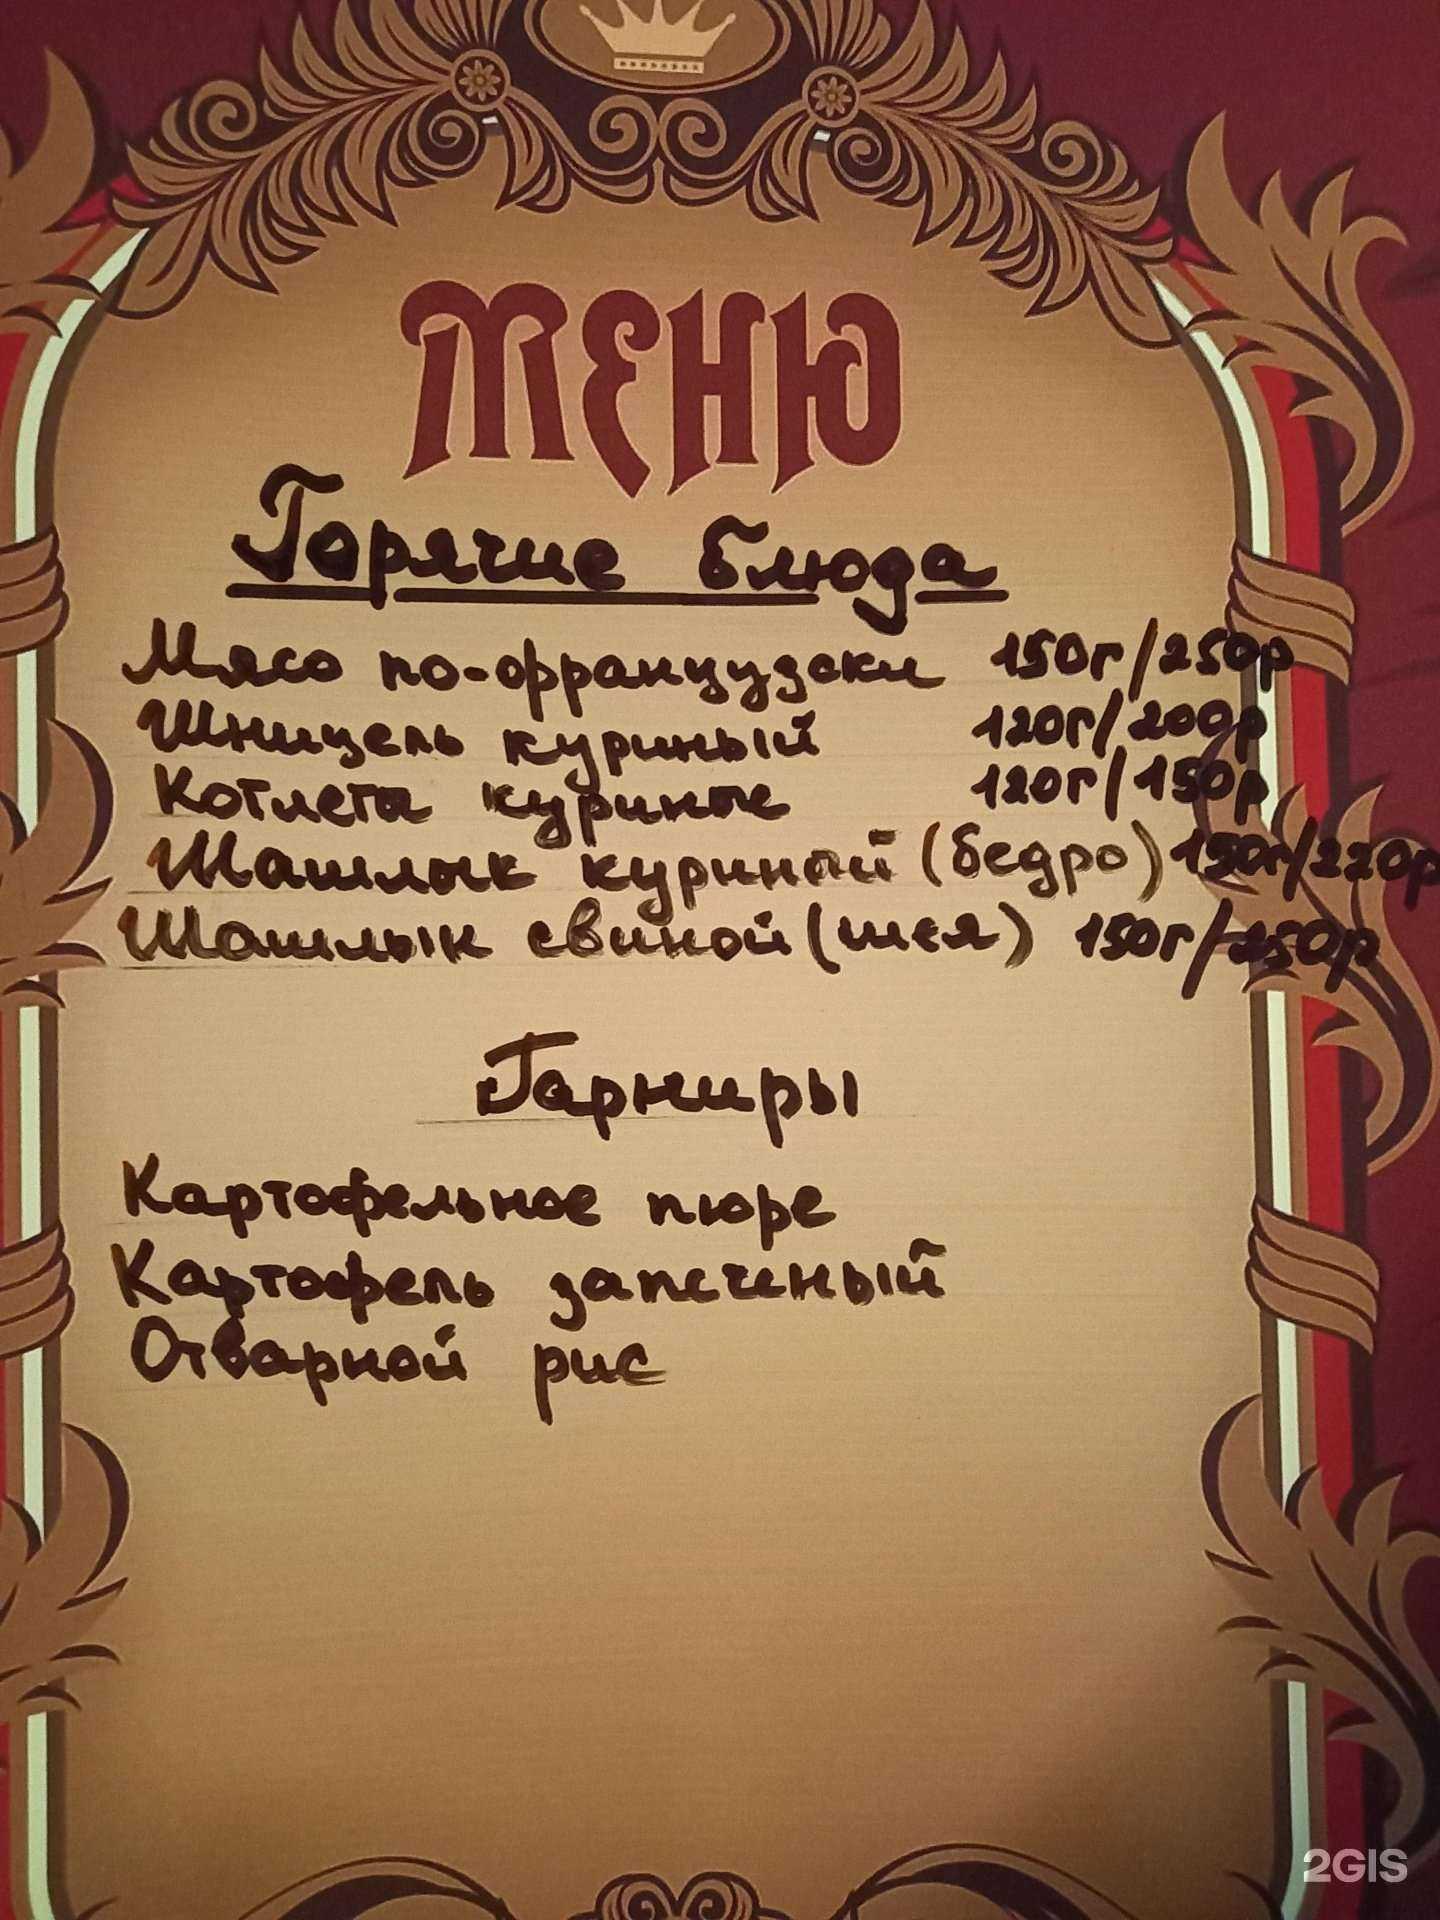 Меню
Горячие блюда
Мясо по-французски 150г/250р
Шницель куриный 120г/200р
Котлеты куриные 120г/150р
Шашлык куриный (бедро) 150г/220р
Шашлык свиной (шея) 150г/250р
Гарниры
Картофельное пюре
Картофель запеченый
Отварной рис
2GIS